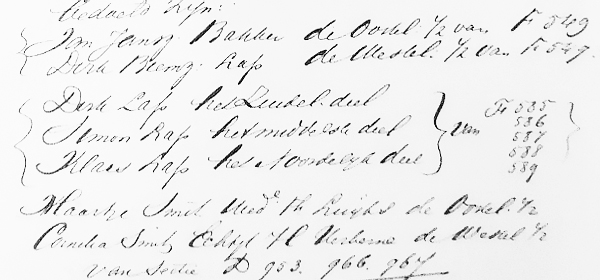 Gedaets Zijn:
Jan Jansz Bakker de Oostel. 1/2 van F 549
Dirk Biemz. Kaps de Westel. 1/2 van F 549.
Dirk Kaps het Zuidel. deel
Simon Kaps het middelste deel
Klaas Kaps het Noordelijk deel
van
F 585
586
587
588
589
Maartje Smit Wed.e Th Ruighs de Oostel. 1/2
Cornelia Smit Echtgt H de Westel 1/2
van Sectie D 953. 966. 967